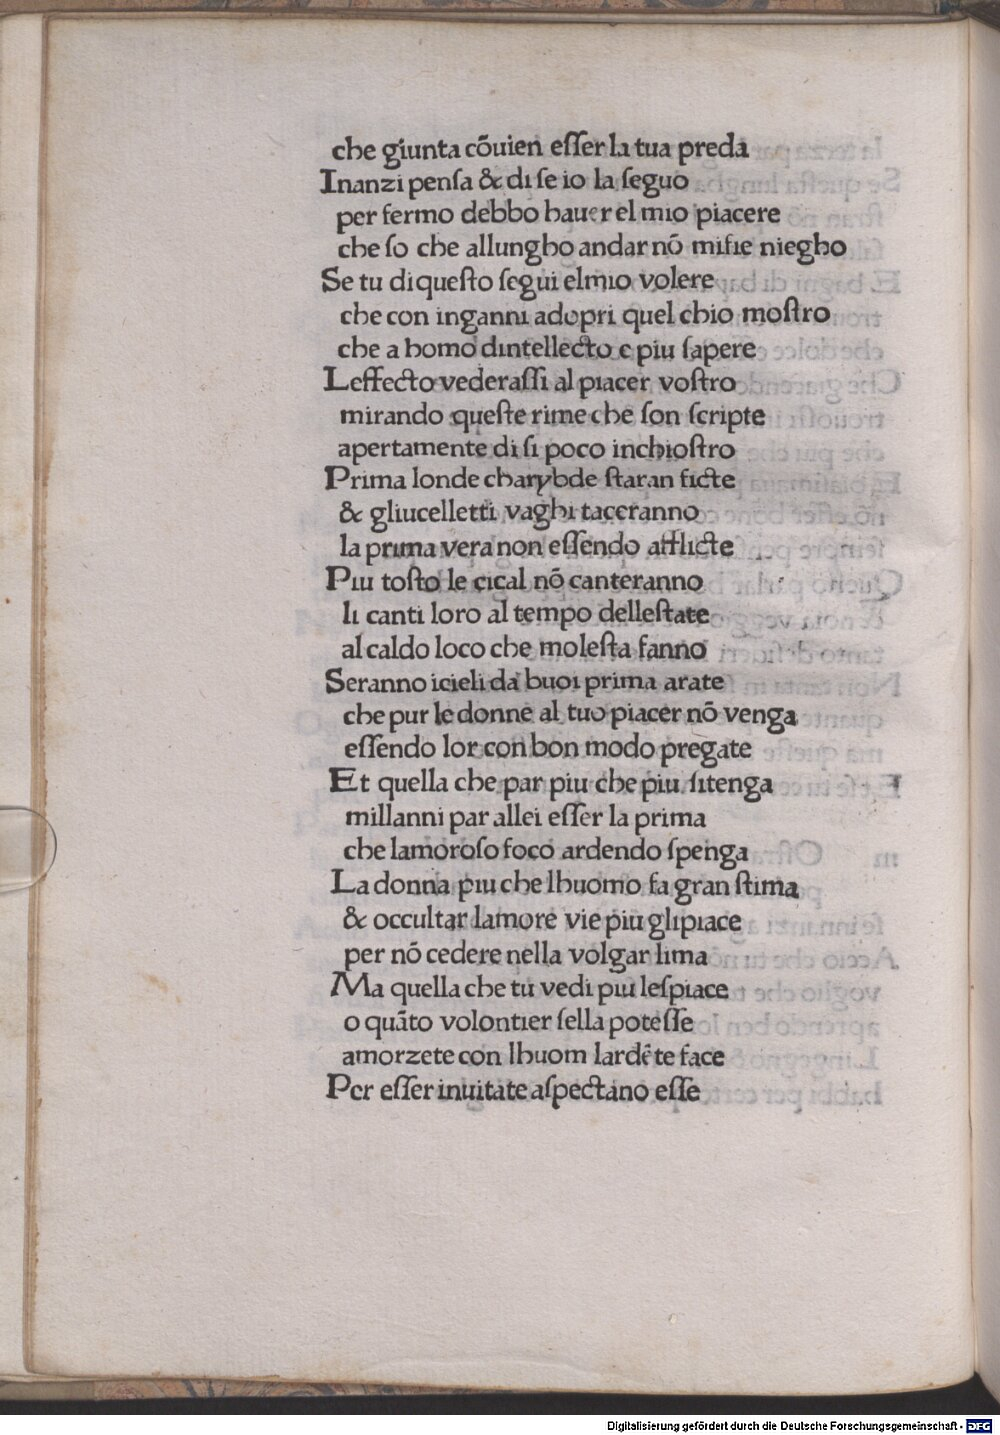 che giunta cõuien eſſer la tua preda
Inanzi penſa & di ſe io la ſeguo
per fermo debbo hauer el mio piacere
che ſo che allungho andar nõ miſie niegho
Se tu di queſto ſegui elmio volere
che con inganni adopri quel chio moſtro
che a homo dintellecto e piu ſapere
Leffecto vederaſſi al piacer voſtro
mirando queſte rime che ſon ſcripte
apertamente di ſi poco inchioſtro
Prima londe charybde ſtaran ficte
& gliucelletti vaghi taceranno
la prima vera non eſſendo afflicte
Piu toſto le cical nõ canteranno
li canti loro al tempo delleſtate
al caldo loco che moleſta fanno
Seranno icieli da buoi prima arate
che pur le donne al tuo piacer nõ venga
eſſendo lor con bon modo pregate
Et quella che par piu che piu ſitenga
millanni par allei eſſer la prima
che lamoroſo foco ardendo ſpenga
La donna piu che lhuomo fa gran ſtima
& occultar lamore vie piu glipiace
per nõ cedere nella volgar lima
Ma quella che tu vedi piu leſpiace
o quãto volontier ſella poteſſe
amorzete con lhuom lardẽte face
Per eſſer inuitate aſpectano eſſe
Digitalisierung gefördert durch die Deutsche Forschungsgemeinschaft - DFG